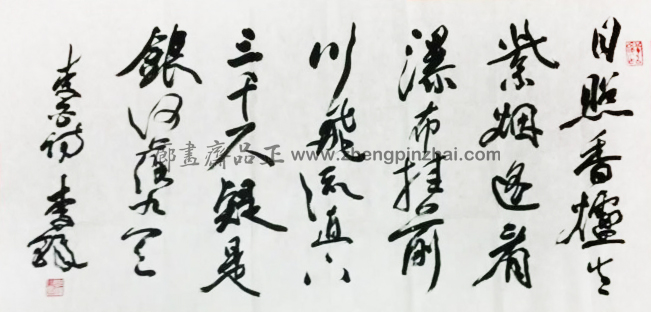 日照香爐生
紫烟遙看
瀑布挂前
川飛流直下
三千尺疑是
銀河落九天
李白詩 李
廊畫齋品正 www.zhengpinzhai.com